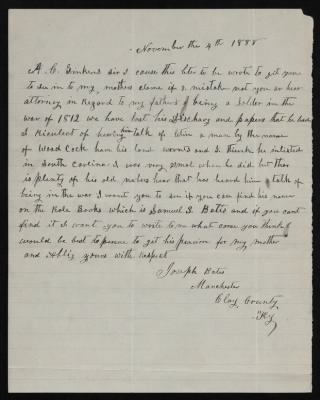 November the 4th 1888
A. C. Simkens sir I cause this leter to be wrote to get you
to see in to my mothers claim if a mistake not you ar her
attorney in Regard to my fathers being a Solder in the
war of 1812 we have lost his discharg and papers that he had
I Recolect of hearing him talk of liven a man by the name
of Wood Cock have his land warents and I think he inlisted
in South Carlina I was very smal when he did but thar
is plenty of his old nabers hear that has heard him talk of
being in the war I want you to see if you can find his name
on the Role Books which is Samuel S. Batis and if you cant
find it I want you to write to me what corse you think
would be best to persue to get his pension for my mother
and Oblig yours with respect
Joseph Batis
Manchester
Clay County
Ky